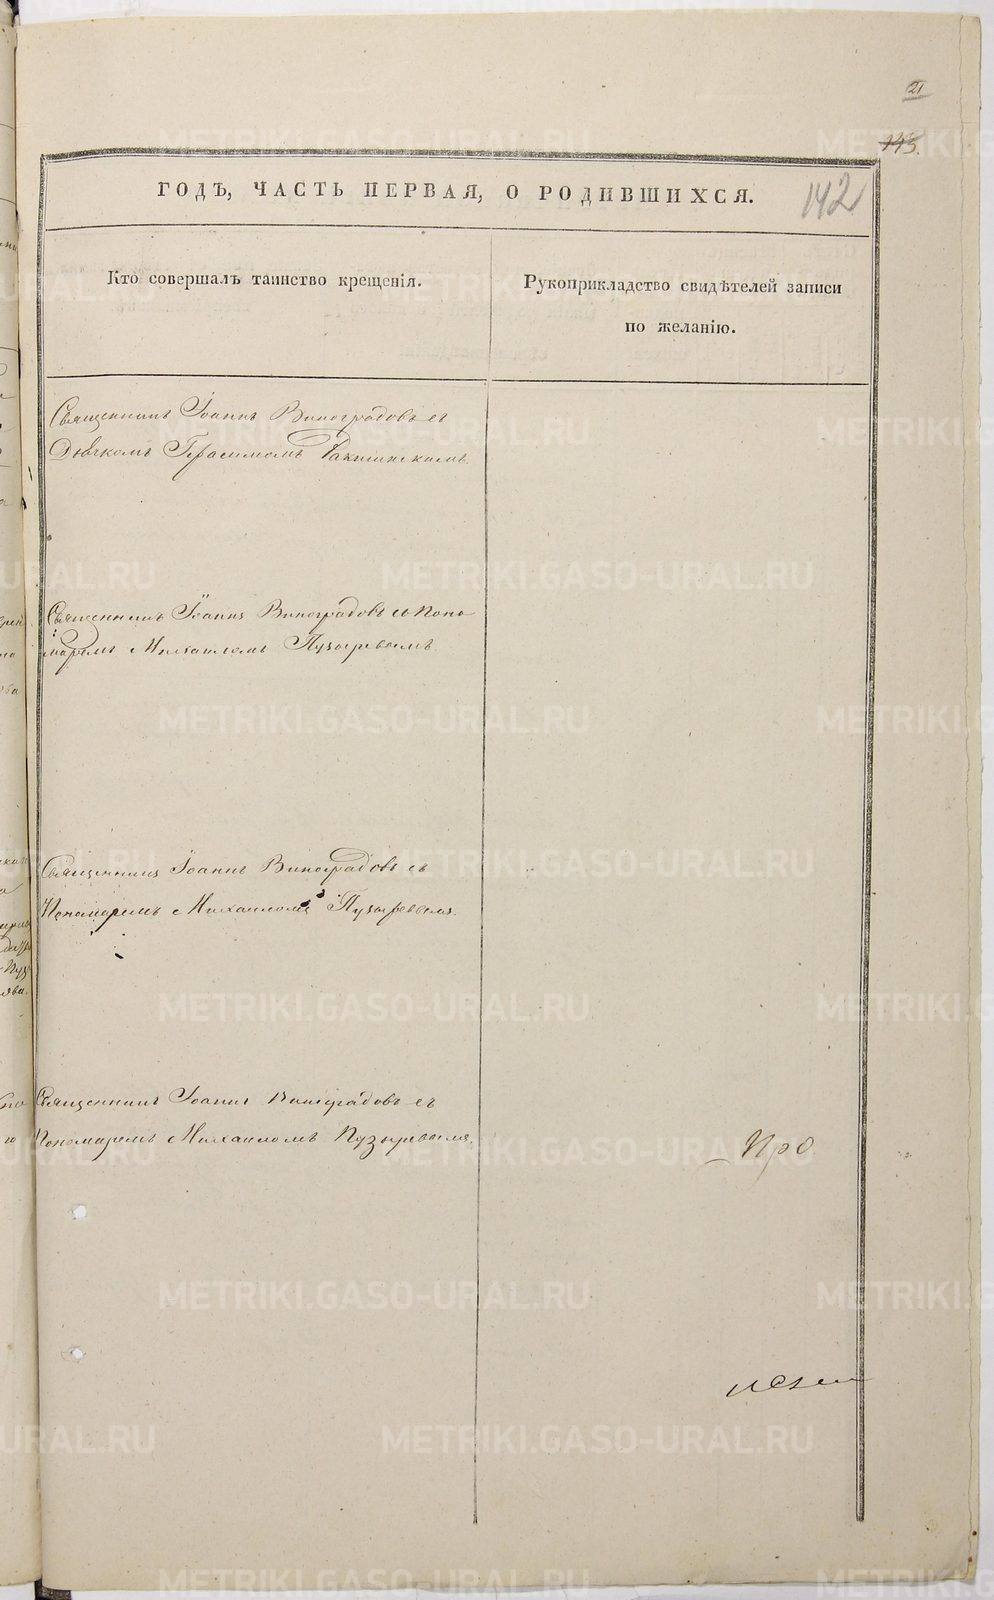 21
143.
ГОДЪ, ЧАСТЬ ПЕРВАЯ, О РОДИВШИХСЯ.
142
Кто совершалъ таинство крещенія.
Рукоприкладство свидѣтелей записи
по желанію.
Священникъ Іоаннъ Виноградовъ съ
Дьячкомъ Герасимомъ
Священникъ Іоаннъ Виноградовъ съ Поно
маремъ Михаиломъ Пузыревымъ
Священникъ Іоаннъ Виноградовъ съ
Пономаремъ Михаиломъ Пузыревымъ.
Священникъ Іоаннъ Виноградовъ съ
Пономаремъ Михаиломъ Пузыревымъ.
Про
METRIKI.GASO-URAL.RU